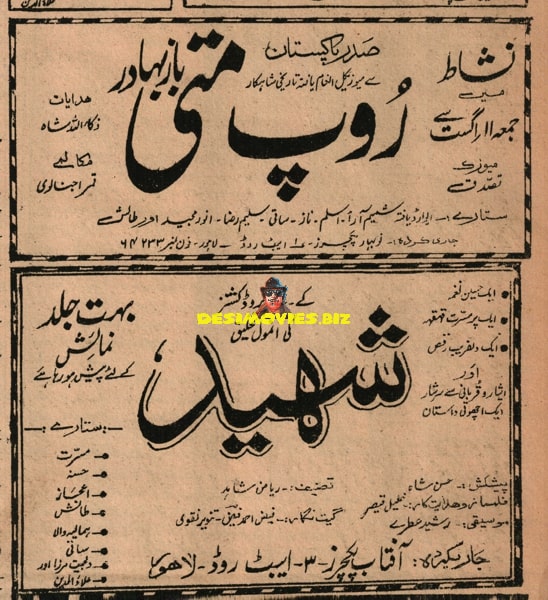 صدر پاکستان
سے میوزیکل انعام یافتہ تاریخی شاہکار
رُوپ متی باز بہادر
نشاط
میں
جمعہ ۱۱ اگست سے
میوزک
تصدق
ھدایات
ذکاء اللہ شاہ
مکالمے
قمر اجنالوی
ستارے :- ایوارڈ یافتہ شمیم آرأ۔ اسلم۔ ناز۔ ساقی۔ سلیم رضا۔ انور مجید اور طالش
جاری کردہ :- نوبہار پکچرز۔ ایبٹ روڈ۔ لاہور۔ فون نمبر ۶۴۲۳۳
کے
کی انمول
شہید
DESIMOVIES.BIZ
ایک حسین نغمہ
ایک پر مسرت قہقہہ
ایک دلفریب رقص
اور
ایثار و قربانی سے سرشار
ایک اچھوتی داستان
بہت جلد
نمائش
کے لئے پیش ہو رہا ہے
ستارے :-
مسرت
حسنہ
اعجاز
طالش
ہمالیہ والا
ساقی
دلجیت مرزا اور
علاؤالدین
پیشکش :- حسن شاہ
تصنیف :- ریاض شاہد
فلمساز و ھدایت کار :- خلیل قیصر
گیت نگار :- فیض احمد فیض۔ تنویر نقوی
موسیقی :- رشید عطرے
جاری کردہ :- آفتاب پکچرز - ۳ - ایبٹ روڈ - لاھور